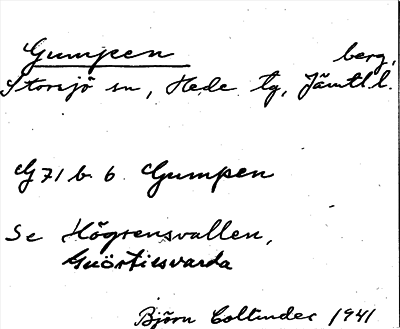 Gumpen berg,
Storsjö sn, Hede tg, Jämtl l.
G 71 b 6 Gumpen
Se Högrensvallen,
Guörtiesvarda
Björn Collinder 1941